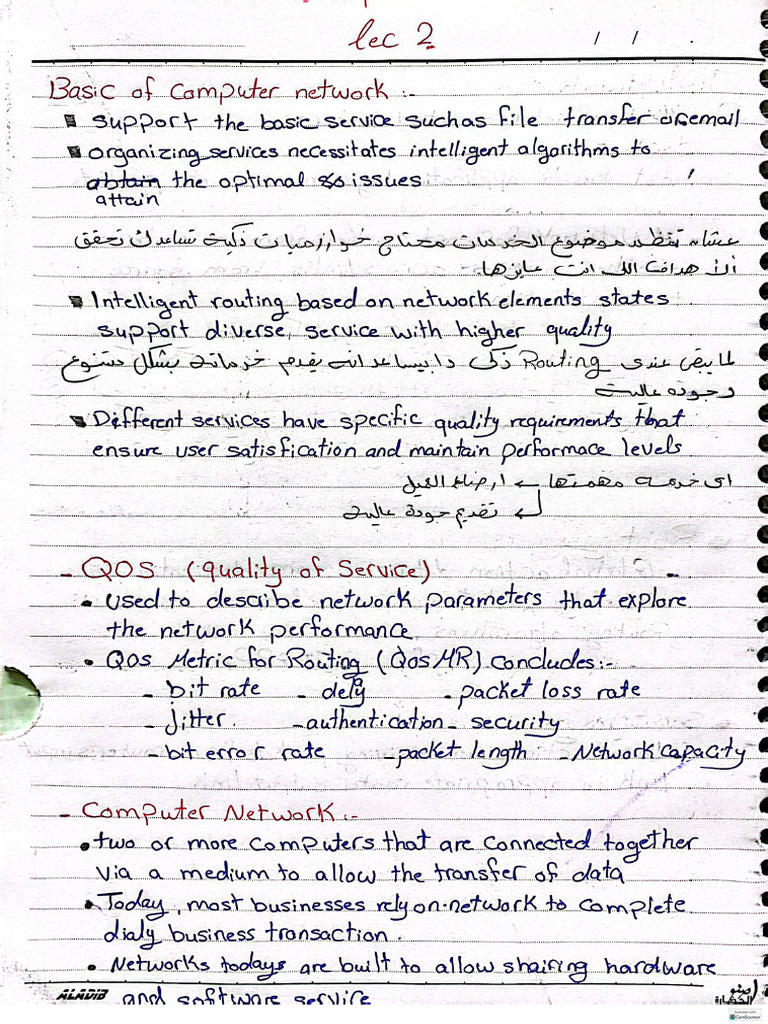 lec 2
/ / .
Basic of computer network :-
support the basic service such as file transfer or email
organizing services necessitates intelligent algorithms to
obtain the optimal issues
attain
عشان تنظم موضوع الخدمات محتاج خوارزميات ذكية تساعدك تحقق
الأهداف اللى انت عايزها.
Intelligent routing based on network elements states
support diverse, service with higher quality
لما يبقى عندى Routing ذكى دا بيساعد انه يقدم خدماته بشكل متنوع
وجوده عالية
Different services have specific quality requirements that
ensure user satisfication and maintain performace levels
اى خدمه مهمتها ← ارضاء العميل
← تقديم جودة عالية
- QOS (quality of service)
• used to describe network parameters that explore
the network performance
• QOS Metric for Routing (QOSMR) concludes:-
- bit rate - dely - packet loss rate
- Jitter. - authentication - security
- bit error rate - packet length - Network capacity
- Computer Network :-
• two or more computers that are connected together
via a medium to allow the transfer of data
• Today, most businesses rely on network to complete
dialy business transaction.
• Networks todays are built to allow shairing hardware
and software service
ALADIB
CamScanner